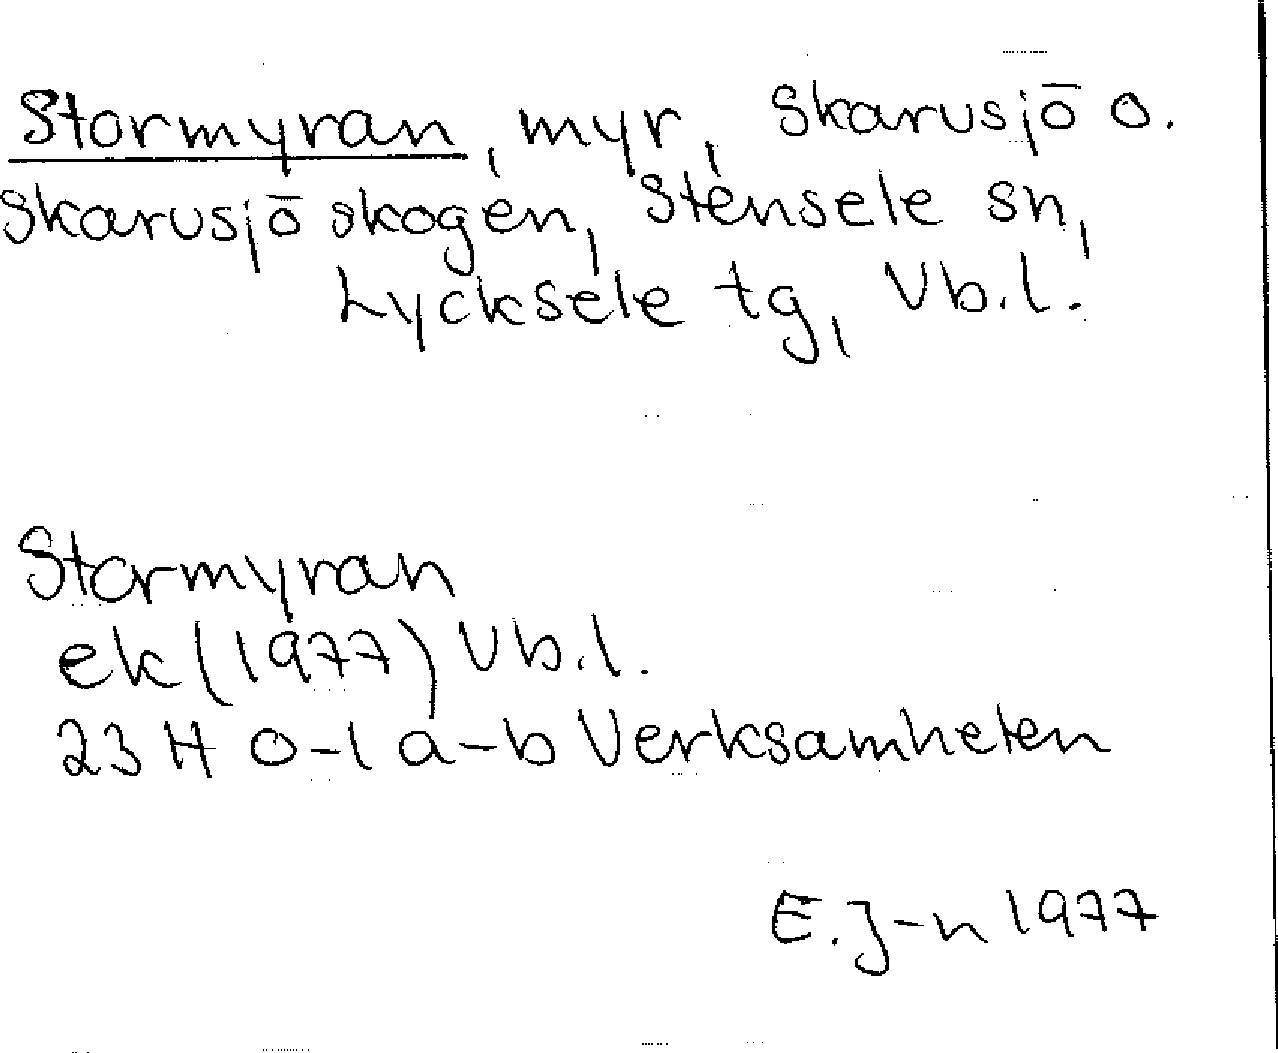 Stormyran, myr, Skarusjö o.
Skarusjöskogen, Stensele sn,
Lycksele tg, Vb.l.
Stormyran
ek (1977) Vb.l.
23 H 0-1 a-b Verksamheten
E. J-n 1977